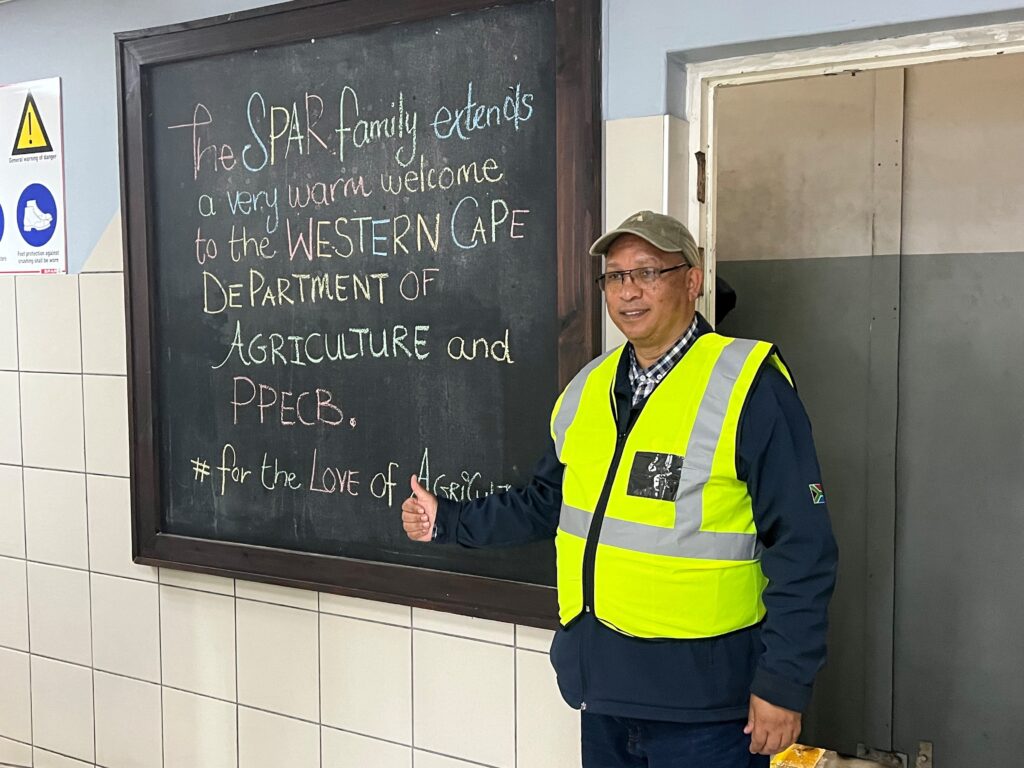 General warning of danger
Foot protection against
crushing shall be worn
The SPAR family extends
a very warm welcome
to the WESTERN CAPE
DEPARTMENT OF
AGRICULTURE and
PPECB.
# for the LOVE of AGRICULT